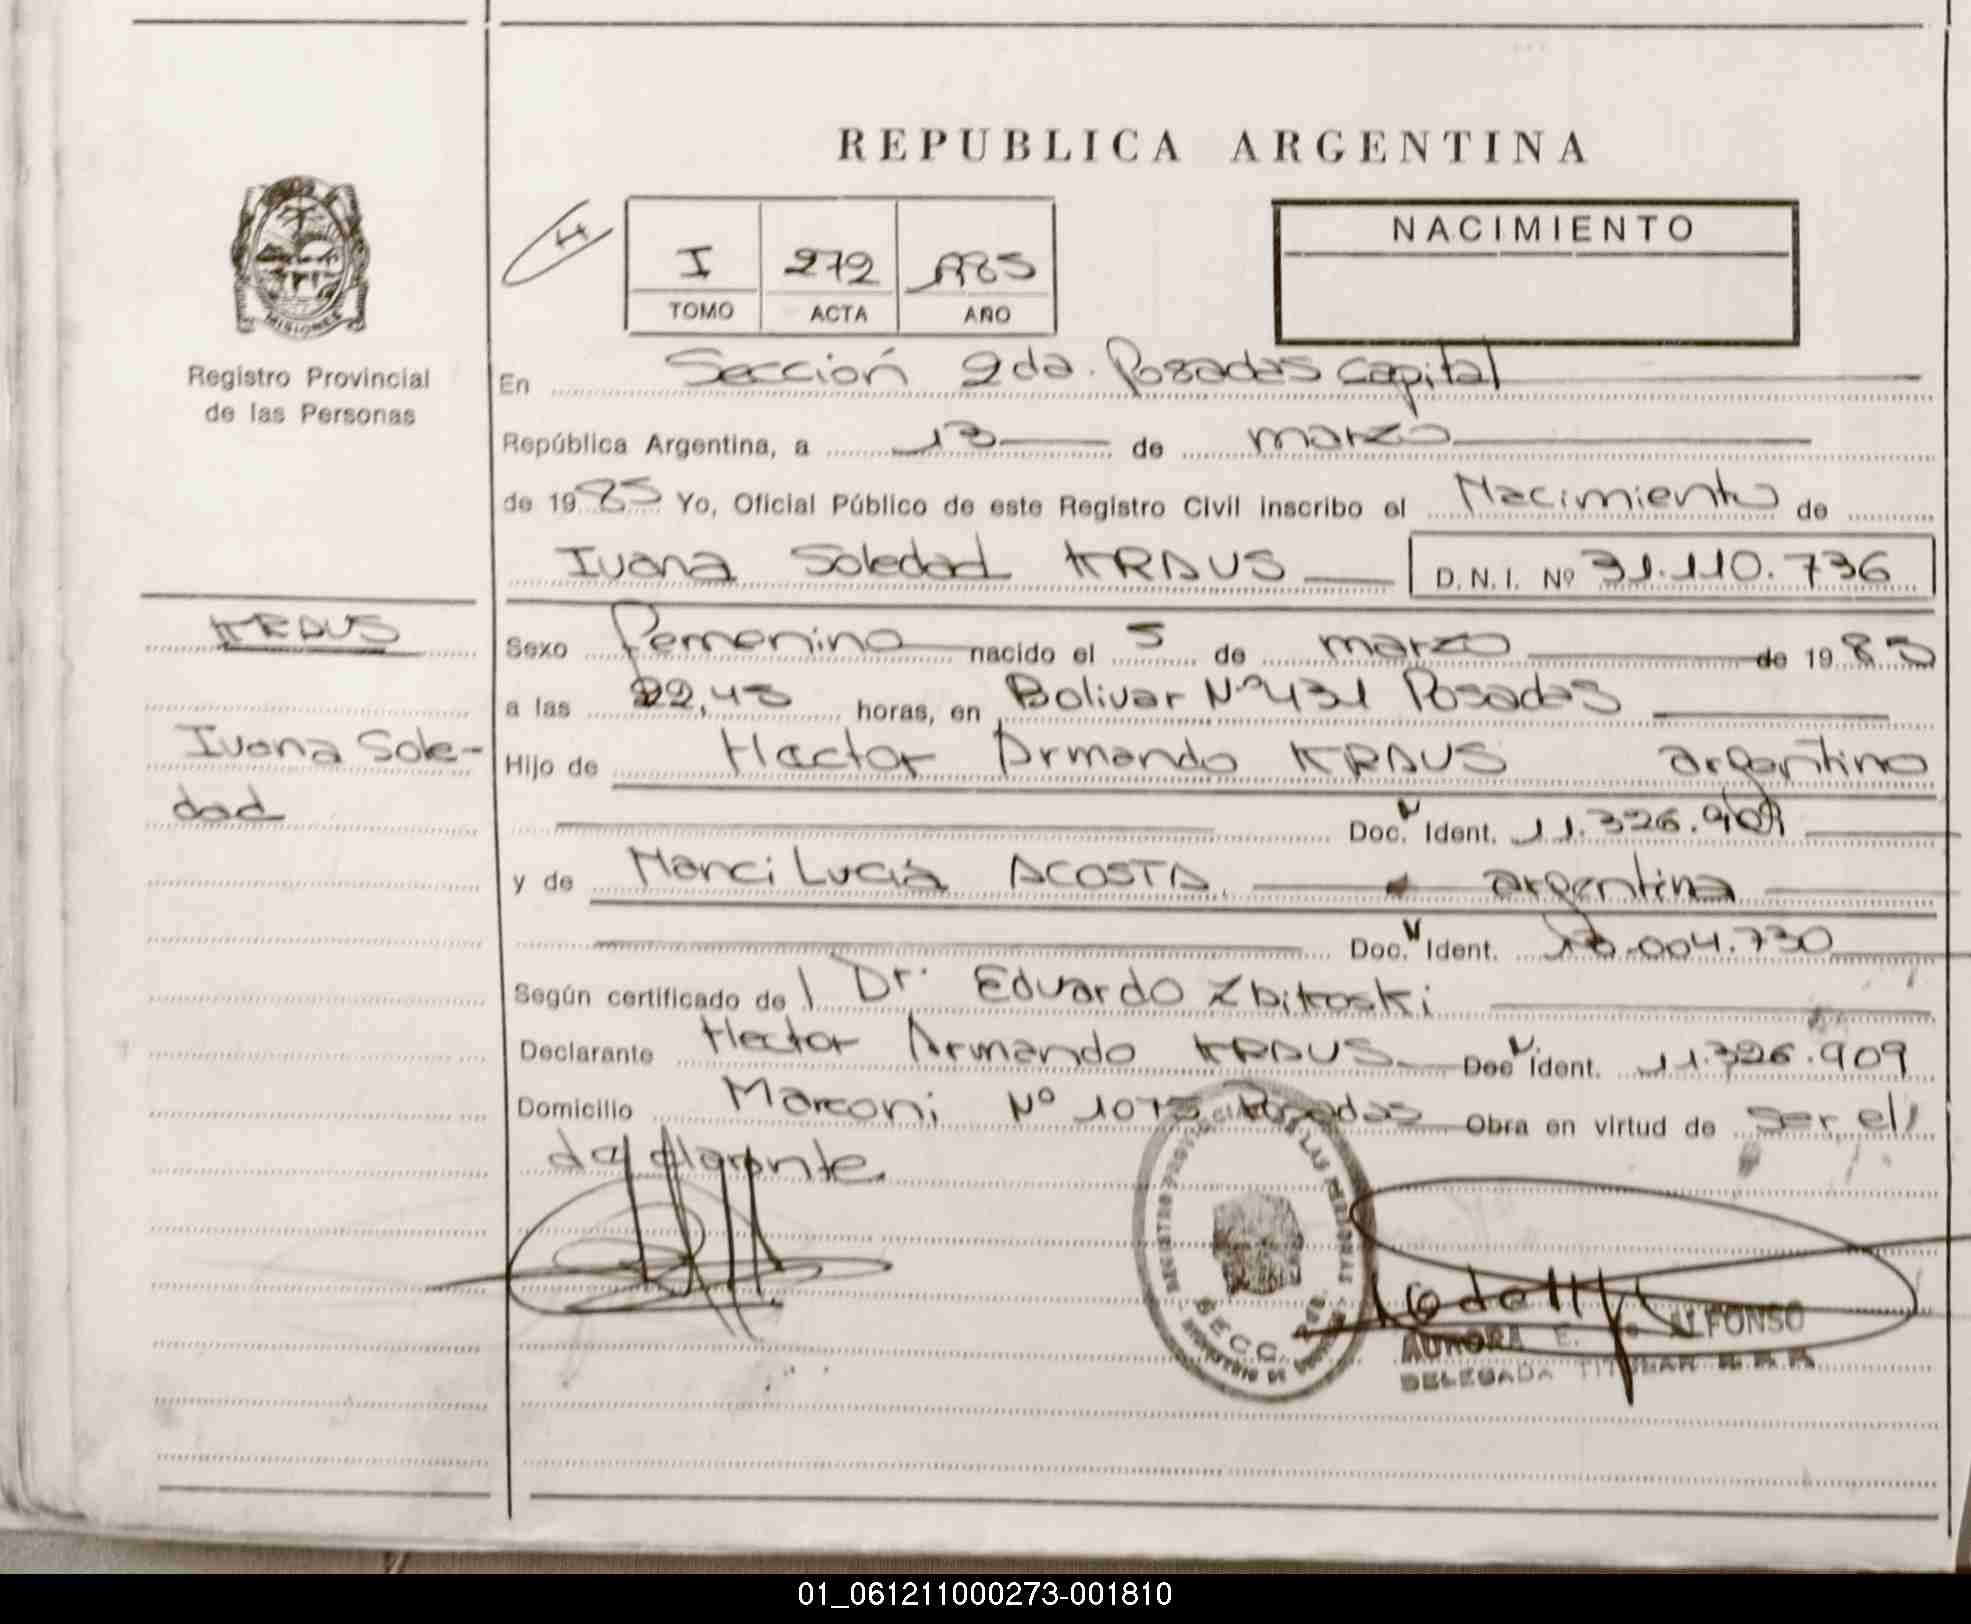 REPUBLICA ARGENTINA
MISIONES
Registro Provincial
de las Personas
H
I 272 1985
TOMO ACTA AÑO
NACIMIENTO
En Sección 2da. Posadas Capital
República Argentina, a 13 de marzo
de 1985 Yo, Oficial Público de este Registro Civil inscribo el Nacimiento de
Ivana Soledad KRAUS D.N.I. Nº 31.110.736
KRAUS
Ivana Sole-
dad
Sexo Femenino nacido el 5 de marzo de 1985
a las 22,45 horas, en Bolivar Nº 431 Posadas
Hijo de Hector Armando KRAUS argentino
Doc. Ident. 11.326.909
y de Nanci Lucia ACOSTA argentina
Doc. Ident. 004.730
Según certificado de l Dr. Eduardo Zbikoski
Declarante Hector Armando KRAUS Doc. Ident. 11.326.909
Domicilio Marconi Nº 1075 Posadas Obra en virtud de ser el
declarante.
REGISTRO PROVINCIAL DE LAS PERSONAS
SECC.
MINISTERIO DE
AURORA E. ALFONSO
DELEGADA TITULAR R.P.P.
01_061211000273-001810